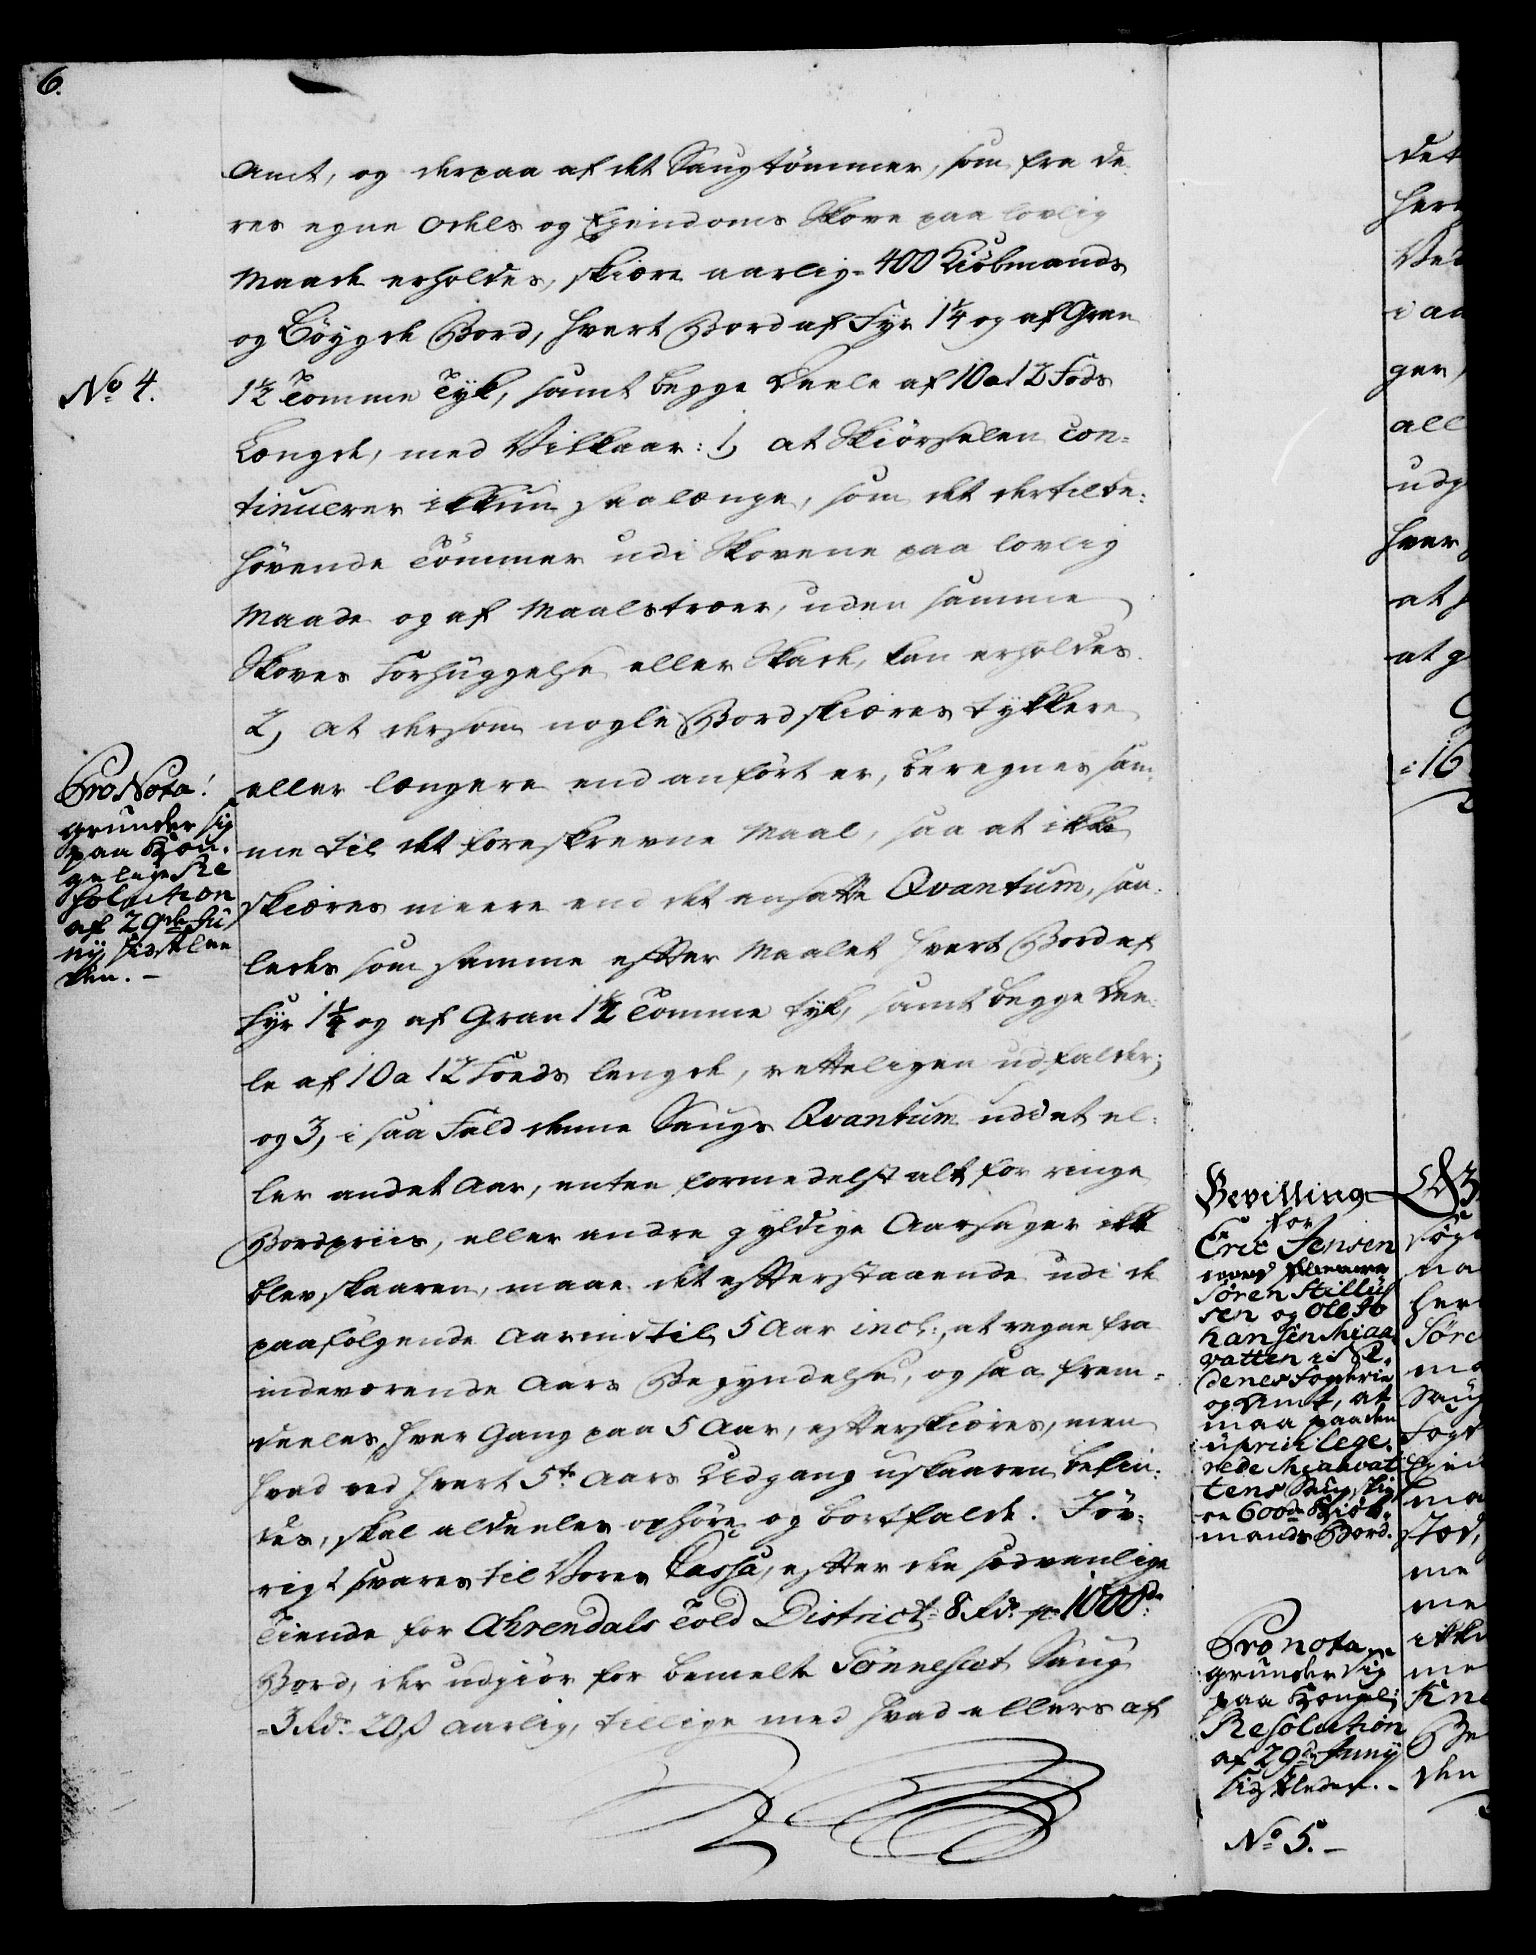 6.
Amt, og derpaa af det Saugtömmer, som fra de
res egne Odels og Eyendoms Skove paa lovlig
Maade erholdes, skiære aarlig 400 Kiöbmands
og Böygde Bord, hvert Bord af Fyr 1¼ og af Gran
No 4.
1½ Tomme Tyk, samt begge Deele af 10 a 12 Fods
Længde, med Vilkaar: 1, at Skiörselen con=
tinuerer ikkun saalænge, som det dertil be=
hövende Tömmer udi Skovene paa lovlig
Maade og af Maalstræer, uden samme
Skoves Forhuggelse eller Skade, kan erholdes.
2, at dersom nogle Bord skiæres tykkere
eller længere end anfört er, beregnes sam
me til det foreskrevne Maal, saa at ikke
skiæres meere end det ansatte Qvantum, saa
ledes som samme efter Maalet hvert Bord af
Fyr 1¼ og af Gran 1½ Tomme tyk, samt begge Dee
le af 10 a 12 Foeds længde, retteligen udfalder;
og 3, i saa Fald denne Saugs Qvantum udi et el=
ler andet Aar, enten formedelst alt for ringe
Bordpriis, eller andre gyldige Aarsager ikke
blev skaaren, maae det efterstaaende udi de
paafölgende Aar indtil 5 Aar incl:, at regne fra
indeværende Aars Begyndelse, og saa frem=
deeles, hver Gang paa 5 Aar, efterskiæres, men
hvad ved hvert 5te Aars Udgang uskaaren befin=
des, skal aldeeles ophöre og bortfalde. Iöv=
rigt svares til Vores Cassa, efter den sædvanlige
Tiende for Ahrendals Told District 8 Rdr pr 1000de
Bord, der udgiör for bemelte Tönneset Saug
3 Rdr 20 s aarlig, tillige med hvad ellers af
Pro Nota!
grunder sig
paa Kon=
gelige Re
solution
af 29de Ju
ny sidstlee
den. –
Bevilling
for
Eric Jensen
Sören Stillüf
sen og Ole Jo
hansen Miaa
vatten i Ne=
denes Fogderie
og Amt, at
maa paa den
uprivilege=
rede Miaavat
tens Saug, skiæ
re 600de Kiöb=
mands Bord.
Pro nota
grunder sig
paa Kongel:
Resolution
af 29de Juny
sidstleden. –
No 5. –
det
her
Ved
i aa
ger
all
udg
hver
at
at g
16
söge
na
her
Söre
ma
Saug
Fogd
Eyed
ma
stod,
me
me
ikke
me
Kne
Be
den